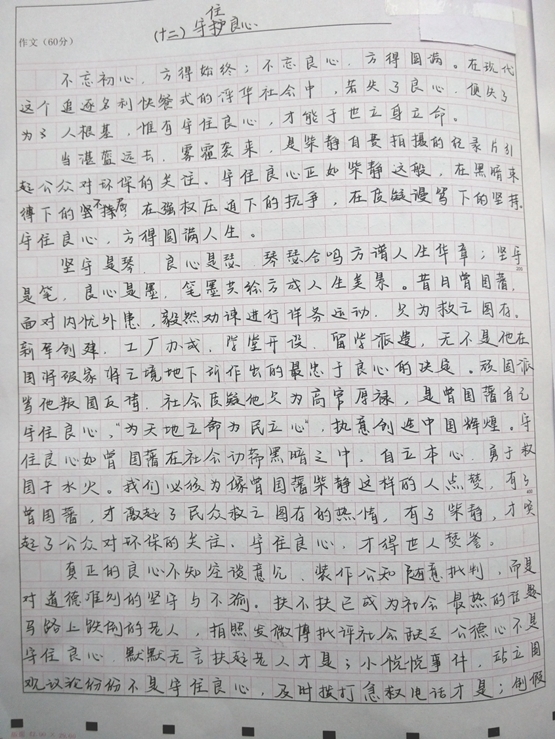 (十二) 守护良心
住
作文(60分)
不忘初心，方得始终；不忘良心，方得圆满。在现代
这个追逐名利快餐式的浮华社会中，若失了良心，便失了
为了人根基，惟有守住良心，才能于世立身立命。
当湛蓝远去，雾霾袭来，是柴静自费拍摄的纪录片引
起公众对环保的关注。守住良心正如柴静这般，在黑暗来
缚下的坚不 在强权压迫下的抗争，在质疑谩骂下的坚持。
守住良心，方得圆满人生。
坚守是琴，良心是瑟，琴瑟合鸣方谱人生华章；坚守
是笔，良心是墨，笔墨共绘方成人生美景。昔日曾国藩，
面对内忧外患，毅然劝谏进行洋务运动，只为救亡图存。
新军创建，工厂办成，学堂开设，留学派遣，无不是他在
国将破家将亡境地下所作出的最忠于良心的决定。顽固派
骂他叛国反清，社会质疑他只为高官厚禄，是曾国藩自己
守住良心，“为天地立命为民立心”，执意创造中国辉煌。守
住良心如曾国藩在社会动荡黑暗之中，自立本心，勇于救
国于水火。我们必须为像曾国藩柴静这样的人点赞，有了
曾国藩，才激起了民众救亡图存的热情，有了柴静，才唤
起了公众对环保的关注。守住良心，才得世人赞誉。
真正的良心不知空谈意见，装作公知随意批判，而是
对道德准则的坚守与不渝。扶不扶已成为社会最热的话题
马路上跌倒的老人，拍照发微博批评社会缺乏公德心不是
守住良心，默默无言扶起老人才是；小悦悦事件，站立围
观议论份份不是守住良心，及时拨打急救电话才是；倒假